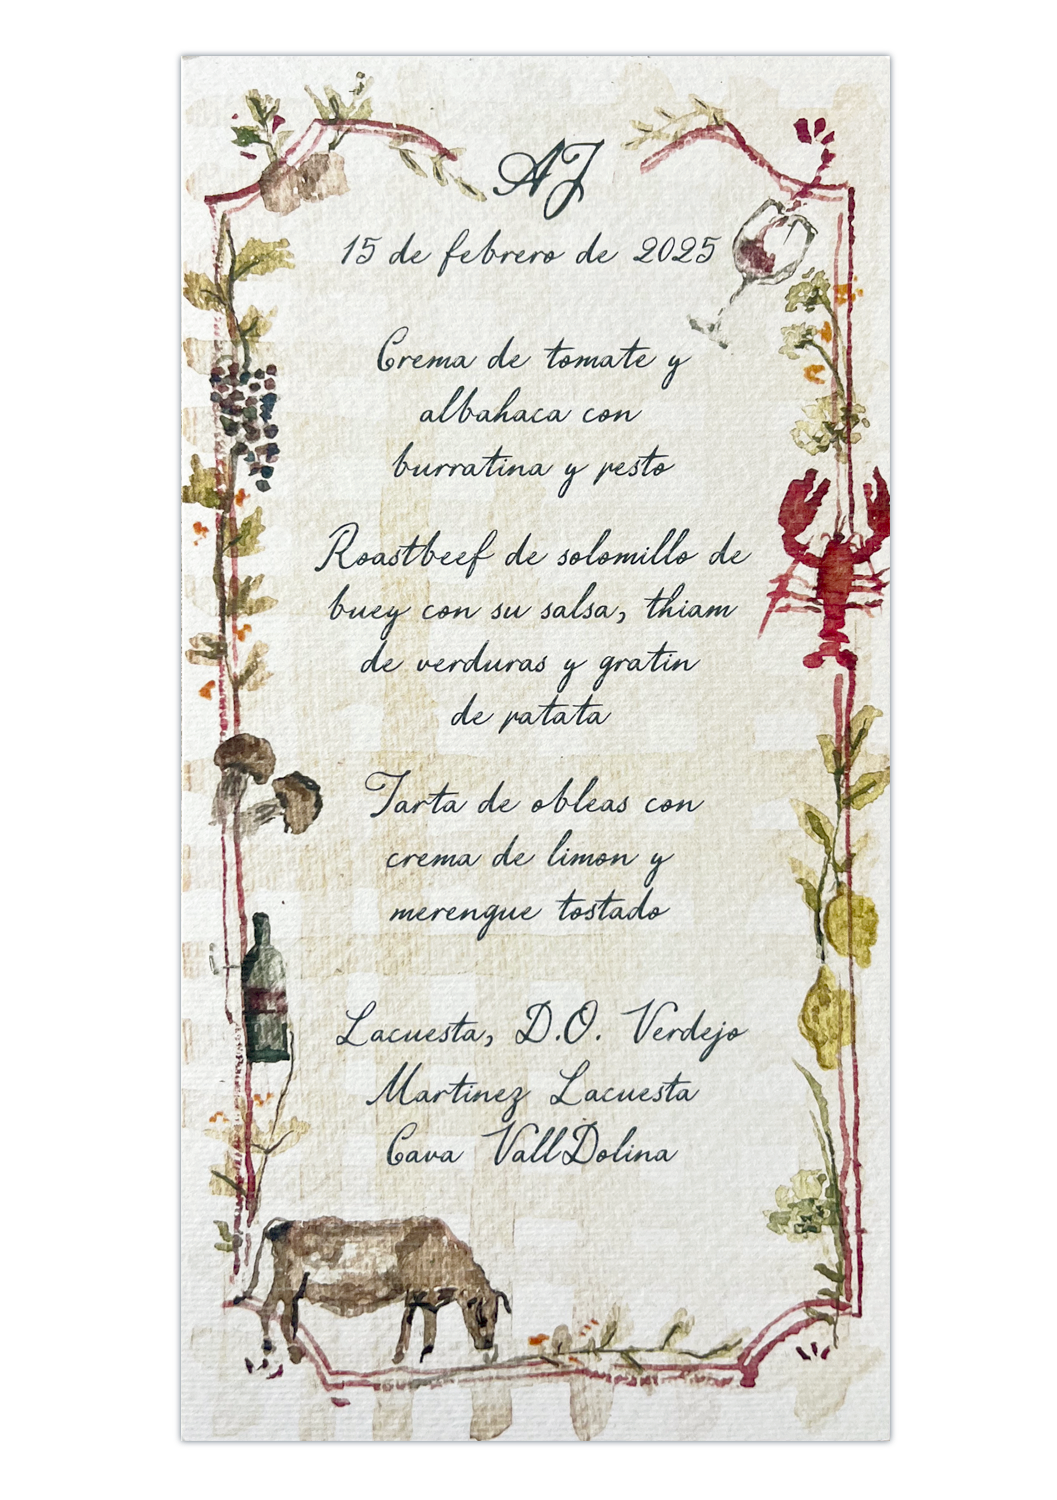 AJ
15 de febrero de 2025
Crema de tomate y
albahaca con
burratina y pesto
Roastbeef de solomillo de
buey con su salsa, thiam
de verduras y gratin
de patata
Tarta de obleas con
crema de limon y
merengue tostado
Lacuesta, D.O. Verdejo
Martinez Lacuesta
Cava VallDolina